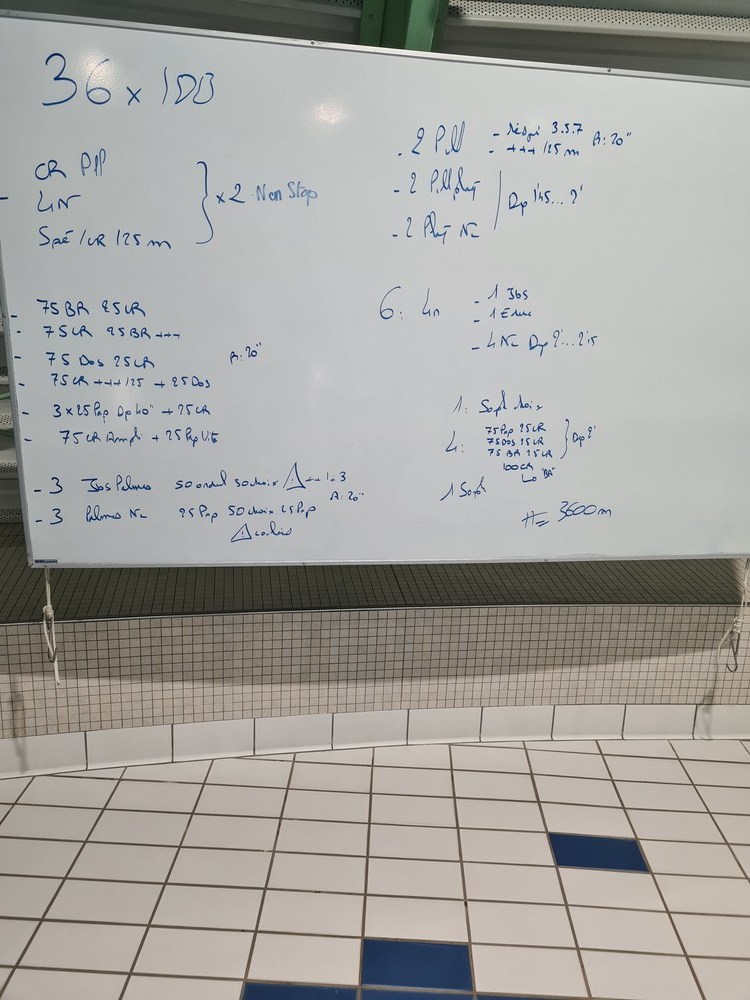 36 x 100
CR PP
4N } x 2 Non Stop
Spé / CR /25 m
- 75 BR 25 CR
- 75 CR 25 BR +++
- 75 Dos 25 CR R: 20"
- 75 CR +++ /25 + 25 Dos
- 3 x 25 Pap Dp 40" + 25 CR
- 75 CR Ampli + 25 Pap Vite
- 3 Jbs Palmes 50 ondul 50 choix ⚠ 1.3
R: 20"
- 3 Palmes Nc 25 Pap 50 choix 25 Pap
⚠ coulées
- 2 Pull - Respi 3.5.7 R: 20"
- +++ /25 m
- 2 Pull plaq Dp 1'45... 2'
- 2 Plaq Nc
6: 4n - 1 Jbs
- 1 Educ
- 4 Nc Dp 2'... 2'15
1: Sopl choix
4: 75 Pap 25 CR
75 Dos 25 CR } Dp 2'
75 BR 25 CR
100 CR
↳ "BR"
1 Sopl
# = 3600 m